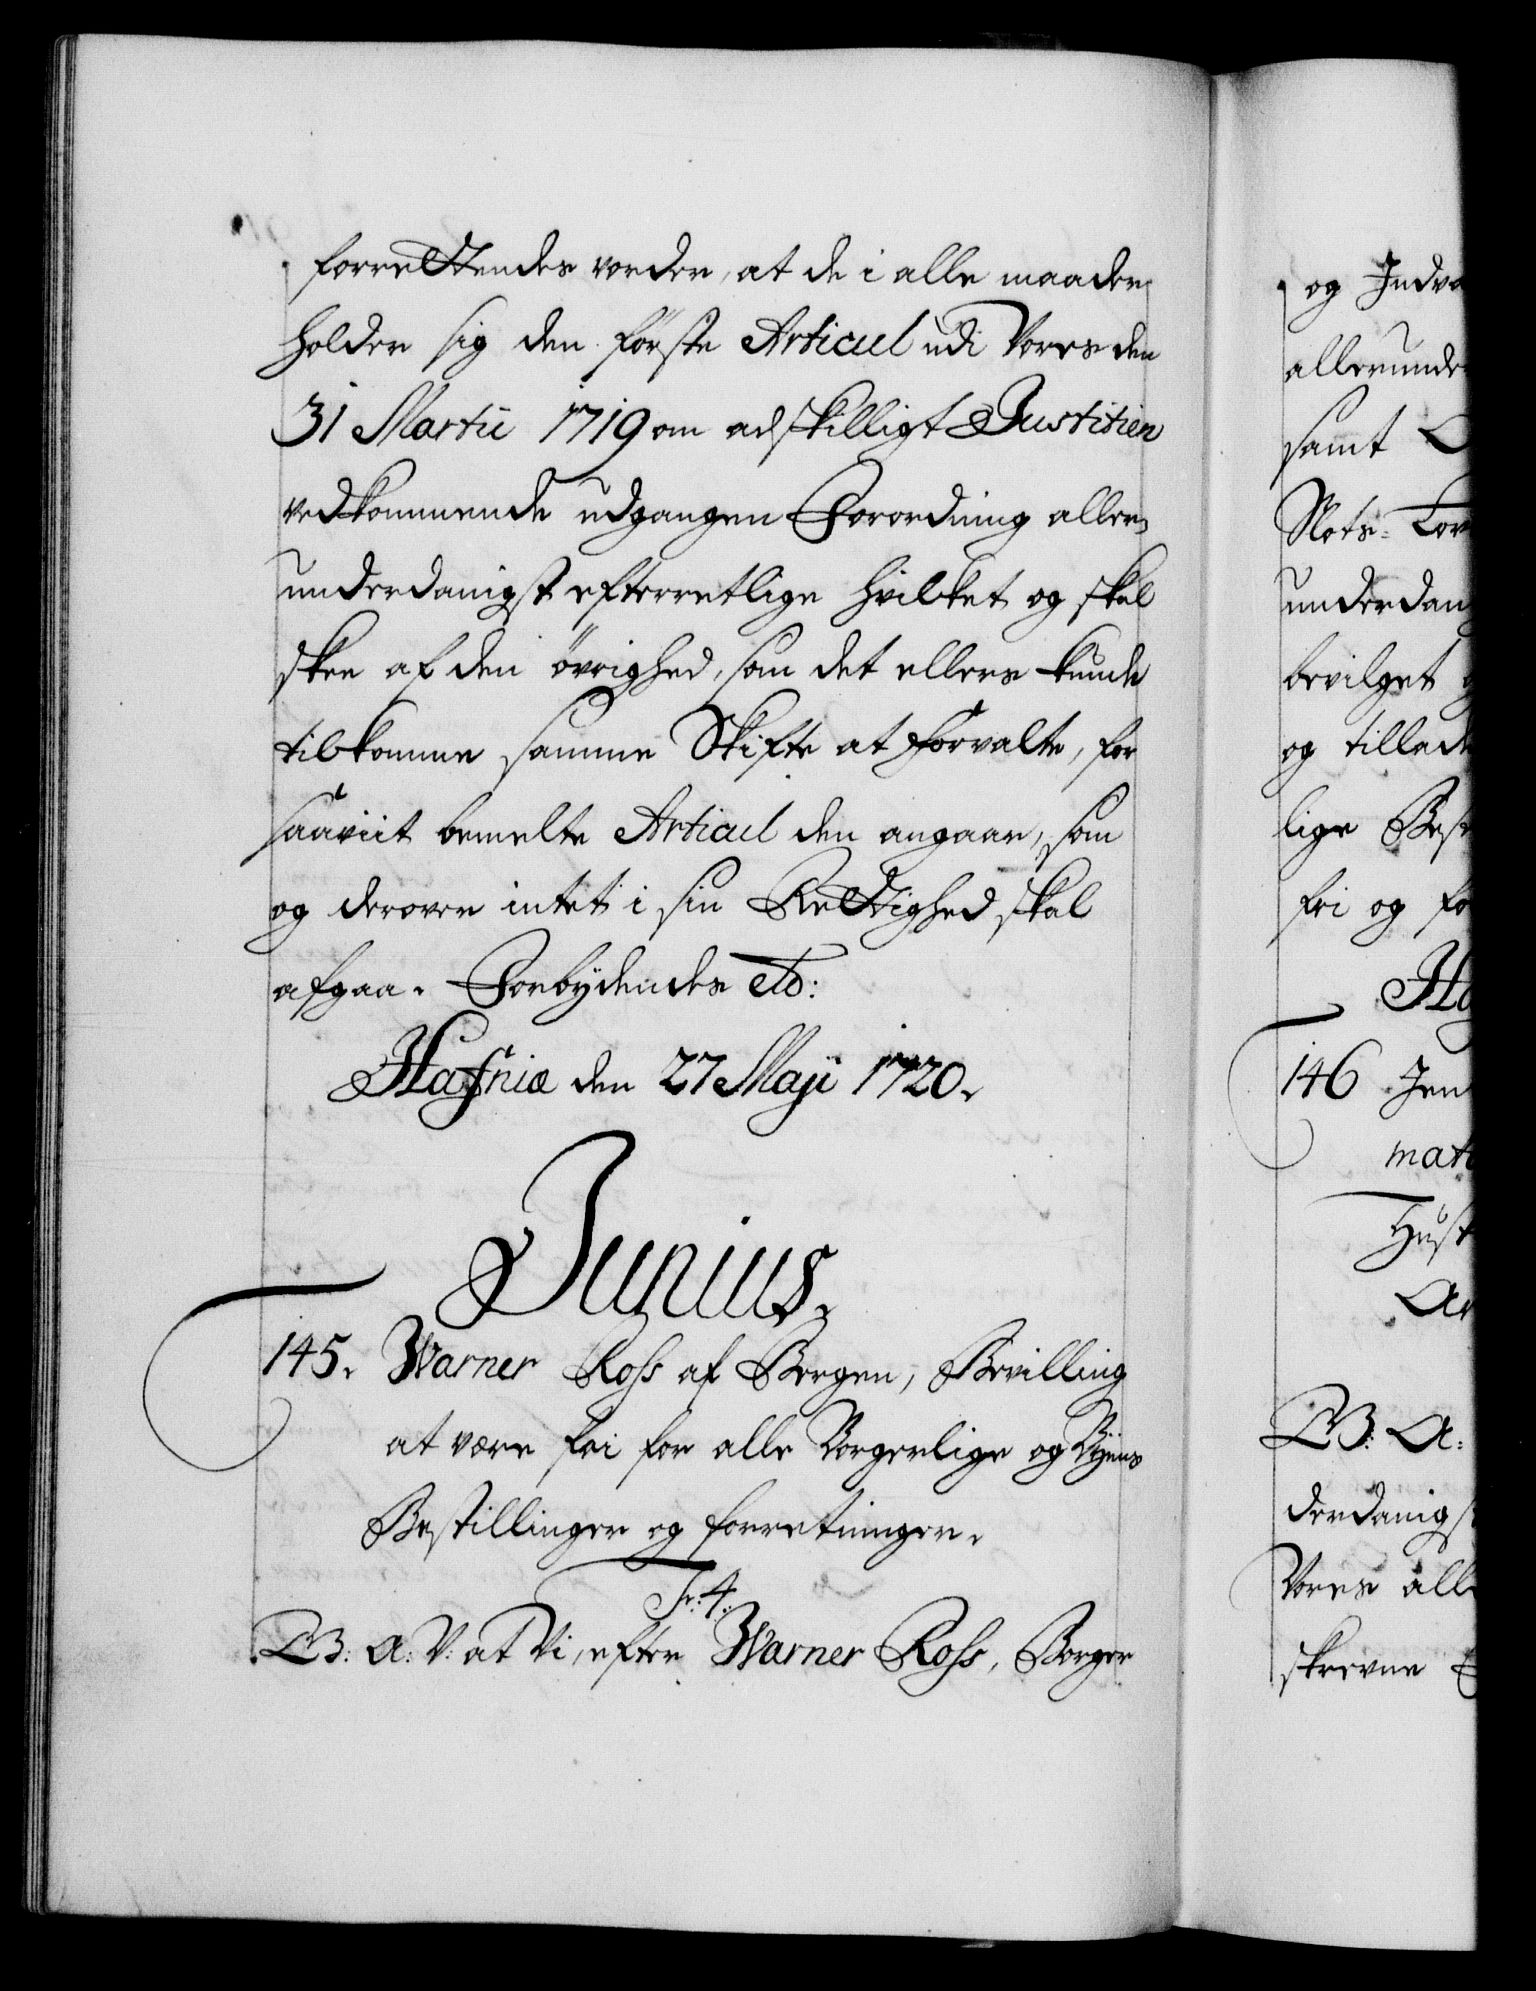 forrettendes vorder, at de i alle maader
holder sig den förste Articul udi Vores den
31 Martii 1719 om adskilligt Justitien
vedkommende udgangen Forordning aller-
underdanigst efterretlige hvilket og skal
skee af den övrighed, som det ellers kunde
tilkomme samme Skifte at forvalte, for
saaviit bemelte Articul den angaar, som
og derover intet i sin Rettighed skal
afgaa. Forbydendes etc:
Hafniæ den 27 Maji 1720.
Junius.
145. Warner Ross af Bergen, Bevilling
at være fri for alle Borgerlige og Byens
Bestillinger og forretninger.
Fr: 4.
C B: A: V: at Vi, efter Warner Ross, Borger
og Indvo
allerunder
samt
Slots-
underdan
bevilget
og tillade
lige Best
fri og fo
146 Jen
mat
Hust
C B: A:
derdanigs
Vores alle
skrevne